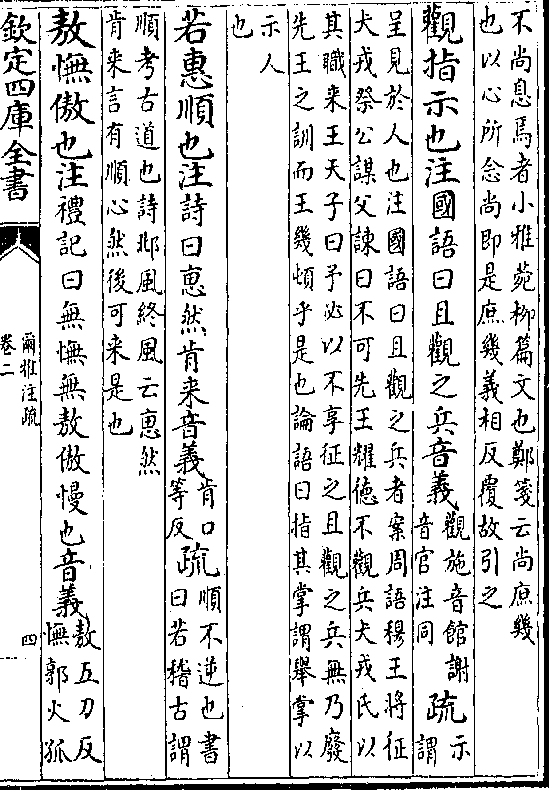 不尚息焉者小雅菀柳篇文也鄭箋云尚庶幾
也以心所念尚即是庶幾義相反覆故引之
觀指示也注國語曰且觀之兵音義觀施音館謝音官注同疏示謂
呈見於人也注國語曰且觀之兵者案周語穆王將征
犬戎祭公謀父諫曰不可先王耀德不觀兵犬戎氏以
其職来王天子曰予必以不享征之且觀之兵無乃廢
先王之訓而王幾頓乎是也論語曰指其掌謂舉掌以
示人
也
若惠順也注詩曰惠然肯来音義肯口等反疏順不逆也書曰若稽古謂
順考古道也詩邶風終風云惠然
肯来言有順心然後可来是也
敖憮傲也注禮記曰無憮無敖傲慢也音義敖五刀反憮郭火孤
欽定四庫全書
爾雅注疏
卷二
四